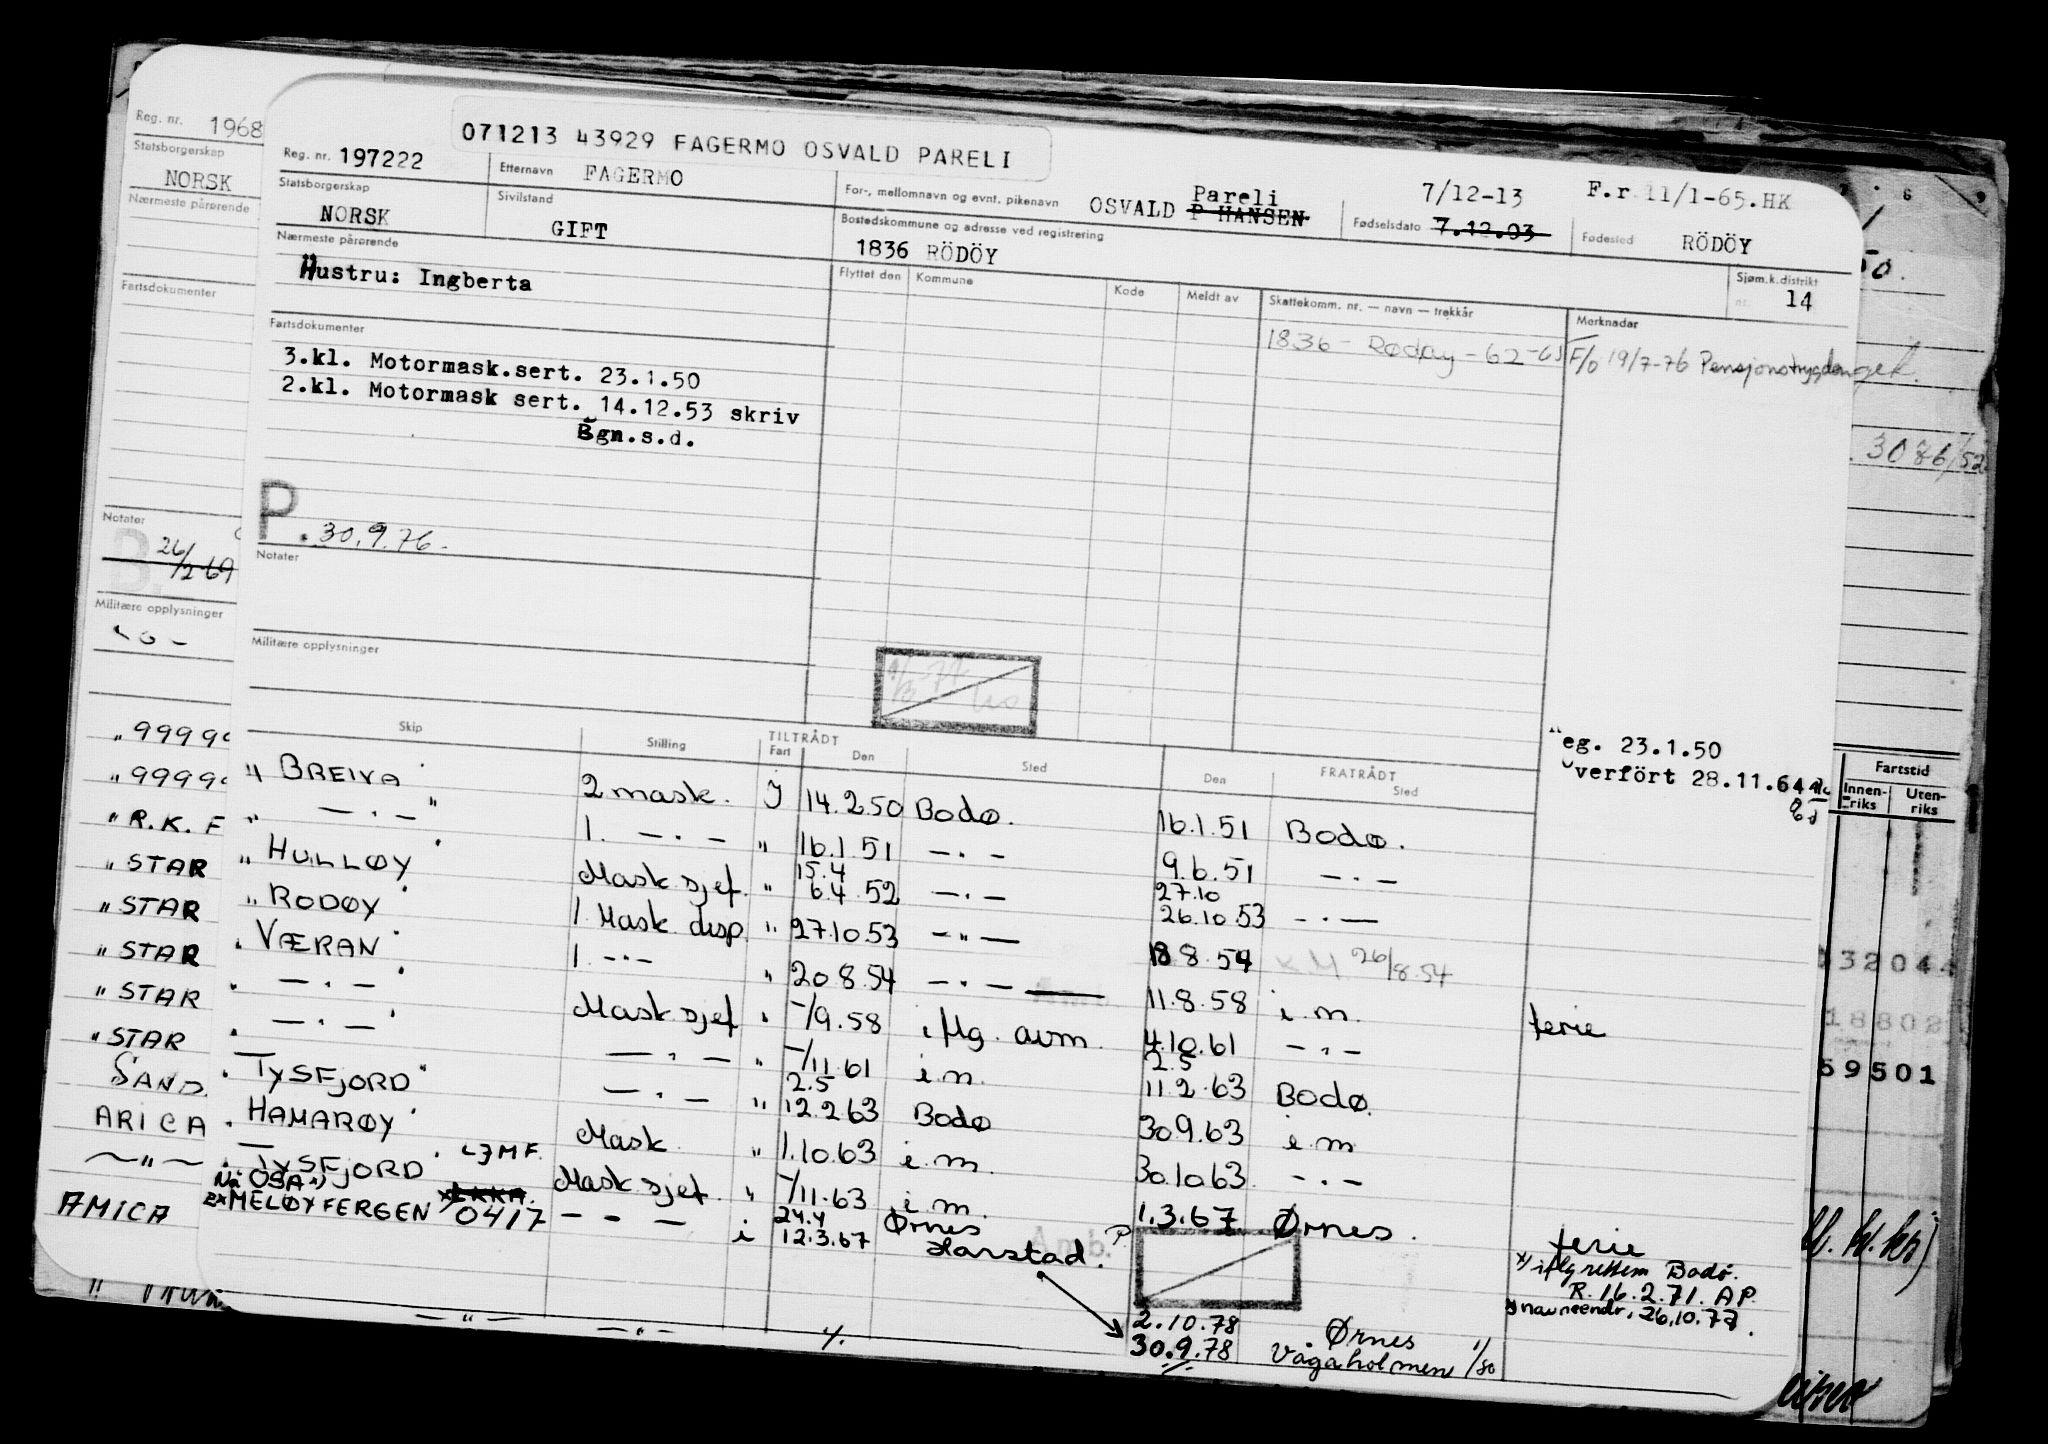 071213 43929 FAGERMO OSVALD PARELI
Reg. nr. 197222
Etternavn FAGERMO
For-, mellomnavn og evnt. pikenavn OSVALD P HANSEN Pareli
7/12-13
Fødselsdato 7.12.03
F.r 11/1-65.HK
Fødested RÖDÖY
Statsborgerskap NORSK
Sivilstand GIFT
Bostedskommune og adresse ved registrering
1836 RÖDÖY
Sjøm.k.distrikt nr. 14
Nærmeste pårørende
Hustru: Ingberta
Flyttet den Kommune Kode Meldt av Skattekomm. nr. — navn — trekkår Merknader
1836 - Rødøy - 62-63 F/o 19/7-76 Pensjonstrygden
Fartsdokumenter
3.kl. Motormask.sert. 23.1.50
2.kl. Motormask sert. 14.12.53 skriv
Bgn.s.d.
P. 30.9.76.
Notater
Militære opplysninger
eg. 23.1.50
verfört 28.11.64
Skip Stilling TILTRÅDT Fart Den Sted FRATRÅDT Den Sted
" BREIVA " 2 mask. J 14.2.50 Bodø. 16.1.51 Bodø.
" — . — " 1. — . — " 16.1.51 — . — 9.6.51 — . —
15.4 27.10
" HULLØY " Mask sjef. " 6.4.52 — . — 26.10.53 — . —
" RODØY " 1. Mask. disp. " 27.10.53 — " — 18.8.54 26/8.54
" VÆRAN " 1. — . — " 20.8.54 — . — 11.8.58 i.m. ferie
" — . — " Mask sjef " -/9.58 iflg. avm. 4.10.61 — . —
2.5
" — . — " — . — " -/11.61 i.m. 11.2.63 Bodø.
2.5
" TYSFJORD " — . — " 12.2.63 Bodø 30.9.63 i.m
" HAMARØY " Mask. " 1.10.63 i.m. 30.10.63 — . —
" TYSFJORD " LJMF. Mask. sjef. " -/11.63 i.m. 1.3.67 Ørnes. ferie
Nå OSA
ex MELØYFERGEN LKKA. 0417 — - — i 24.4 Ørnes
12.3.67 Harstad.
Amb.
x) iflg rettem Bodø.
R. 16.2.71. AP.
navneendr. 26.10.77.
2.10.78 Ørnes
— " — — . — 30.9.78 Vågaholmen 1/80
Reg. nr. 1968
Statsborgerskap
NORSK
Nærmeste pårørende
Fartsdokumenter
Notater
26/2-69
Militære opplysninger
" 9999
" 9999
" R.K. F
" STAR
" STAR
" STAR
" STAR
" STAR
SAND.
ARICA
— " —
AMICA
50.
3086/52
Fartstid
Innenriks Utenriks
32044
18802
59501